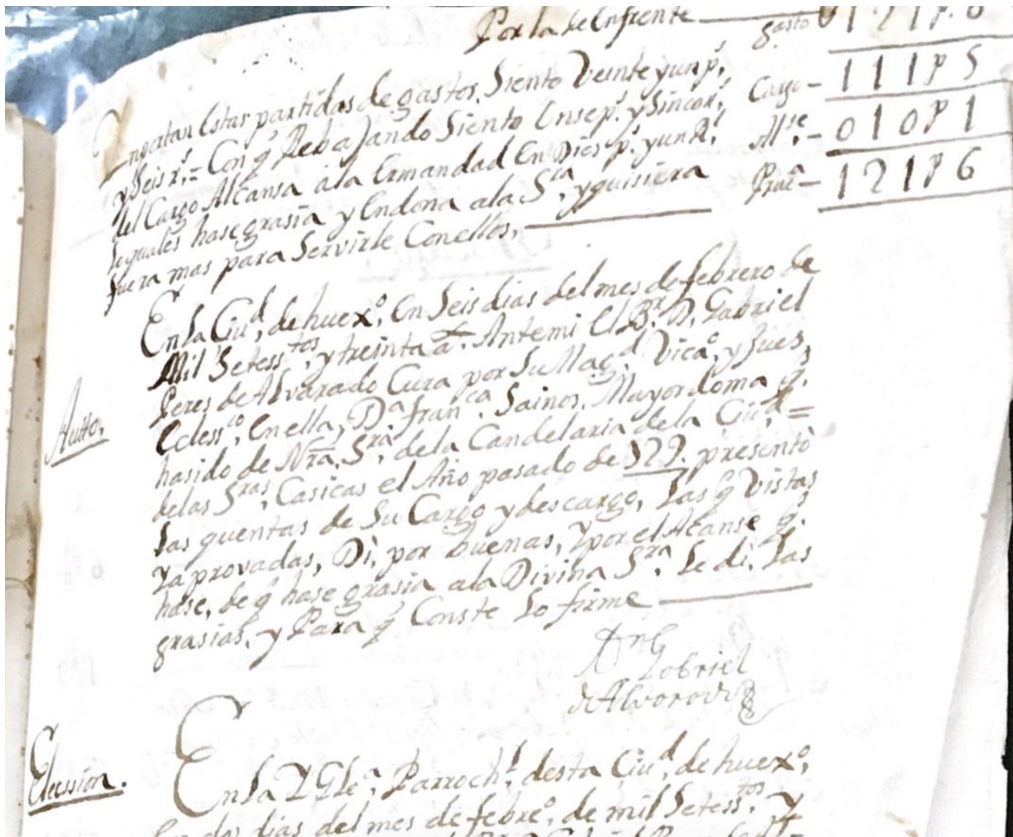 Por la de Enfrente — gasto 0121p.6
Ymportan Estas partidas de gastos, Siento Veinte yun p.s
y Seis r.s = Con q Rebajando Siento Onse p.s y Sinco r.s Cargo – 111p5
del Cargo Alcansa ala Ermandad En Dies p.s yun R.l All.se – 010p1
lo quales hase grasia y Endona ala S.ra, y quisiera Prue.a – 121p6
fuera mas para Servirle Conellos,
En la Ciu.d, de huex.o, En Seis dias del mes de febrero de
Mil Setess.tos, y treinta a.s Antemi El B.r D. Gabriel
Peres de Alvarado Cura por Su Mag.d Vica.o, y Jues,
Autto.
Ecless.co, En ella, D.a fran.ca Sainos, Mayordoma q.
hasido de N̄ra, S.ra, dela Candelaria dela Ciu.d =
delas S.ras, Casicas el Año pasado de 729. presento
las quentas de Su Cargo y descargo, las q Vistas
y aprovadas, Di, por buenas, y por el Alcanse q.
hase, de q hase grasia ala Divina S.ra, le di, las
grasias, y Para q Conste lo firme
Gabriel
de Alvarado
Elecssion.
En la Ygle.a, Parroch.l, desta Ciu.d, de huex.o,
En dos dias del mes de febre.o, de mil Setess.tos, y